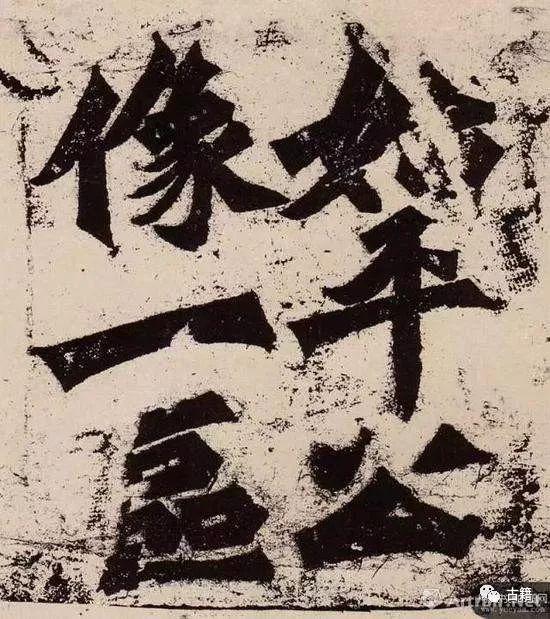 始平公
像一區
古籍
Artron.Net